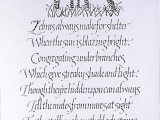 Zebras always make for shelter
When the sun is blazing bright:
Congregating under branches
Which give streaky shade and light.
Though they're hidden you can always
Tell the males from mane set sight